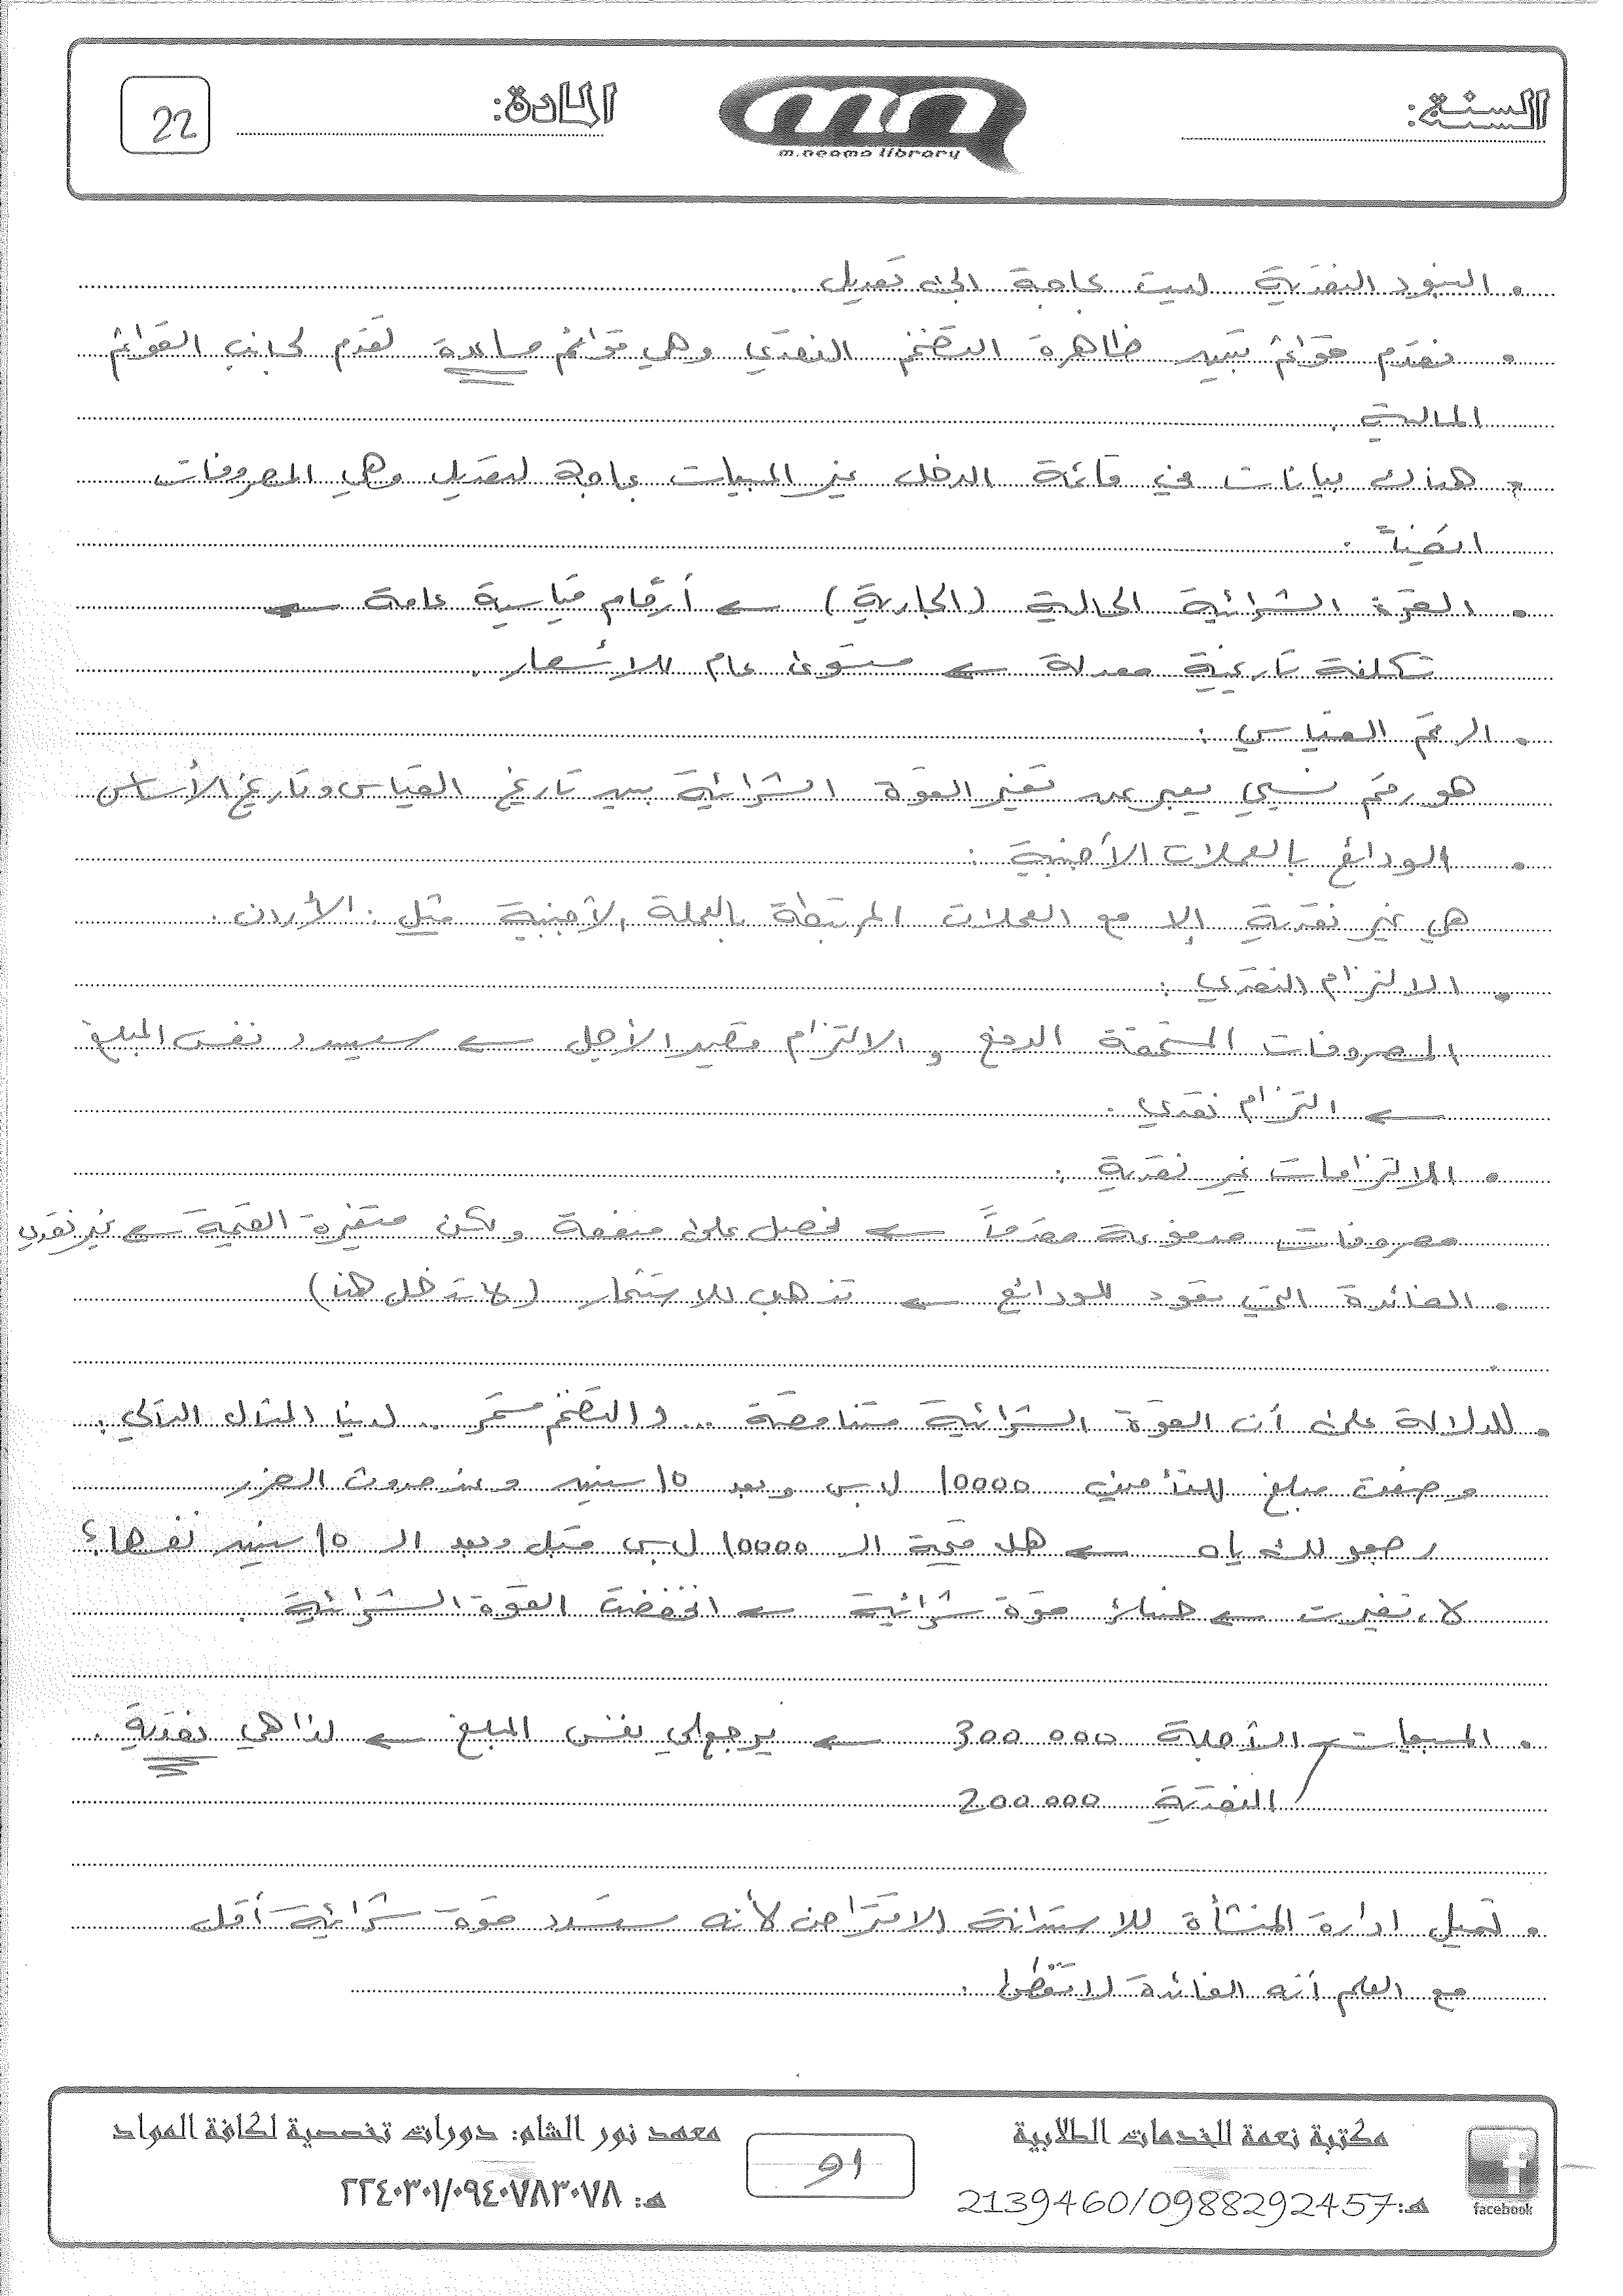 السنة:
m.neama library
المادة:
22
• البنود النقدية ليست بحاجة إلى تعديل .
• نقدم قوائم تبين ظاهرة التضخم النقدي وهي قوائم مساعدة تقدم بجانب القوائم
المالية .
• هناك بيانات في قائمة الدخل غير المبيعات بحاجة لتعديل وهي المصروفات
أيضاً .
• القوة الشرائية الحالية (الجارية) ← أرقام قياسية عامة ←
تكلفة تاريخية معدلة ← مستوى عام للأسعار .
• الرقم القياسي :
هو رقم نسبي يعبر عن تغير القوة الشرائية بين تاريخ القياس وتاريخ الأساس
• الودائع بالعملات الأجنبية :
هي غير نقدية إلا مع العملات المرتبطة بالعملة الأجنبية مثل : الأردن .
• الالتزام النقدي :
المصروفات المستحقة الدفع و الالتزام قصير الأجل ← سيسدد نفس المبلغ
← التزام نقدي .
• الالتزامات غير نقدية :
مصروفات مدفوعة مقدماً ← نحصل على منفعة ولكن متغيرة القيمة ← غير نقدي
• الفائدة التي تعود للودائع ← تذهب للاستثمار (لا تدخل هنا)
• للدلالة على أن القوة الشرائية متناقصة .. والتضخم مستمر .. لدينا المثال التالي :
وضعت مبلغ للتأمين 10000 ل.س وبعد 15 سنين وعند حدوث الضرر
رجعو لك ياه ← هل قيمة الـ 10000 ل.س قبل وبعد الـ 15 سنين نفسها؟
لا، تغيرت ← خسائر قوة شرائية ← انخفضت القوة الشرائية .
• المبيعات الآجلة 300 000 ← يرجع لي نفس المبلغ ← لذا هي نقدية .
النقدية 200 000
• تميل ادارة المنشأة للاستدانة الاقتراض لأنه ستسدد قوة شرائية أقل
مع العلم أنه الفائدة لا تغطي .
مكتبة نعمة للخدمات الطلابية
هـ: 2139460/0988292457
facebook
91
معهد نور الشام: دورات تخصصية لكافة المواد
هـ: ٢٢٤٠٣٠١/٠٩٤٠٧٨٣٠٧٨